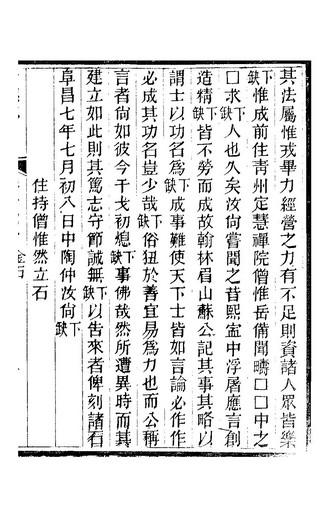 其法屬惟戒畢力經營之力有不足則資諸人眾皆樂
下缺惟成前住青州定慧禪院僧惟岳備聞疇囗囗中之
囗求下缺人也久矣汝尚嘗聞之昔熙寧中浮屠應言創
造精下缺皆不勞而成故翰林眉山蘇公記其事其略以
謂士以功名為下缺成事難使天下士皆如言論必作作
必成其功名豈少哉下缺俗狃於善宜易為力也而公稱
言者尚如彼今干戈初熄下缺事佛哉然所遭異時而其
建立如此則其篤志守節誠無下缺以告來者俾刻諸石
阜昌七年七月初八日中陶仲汝尚下缺
住持僧惟然立石
金石